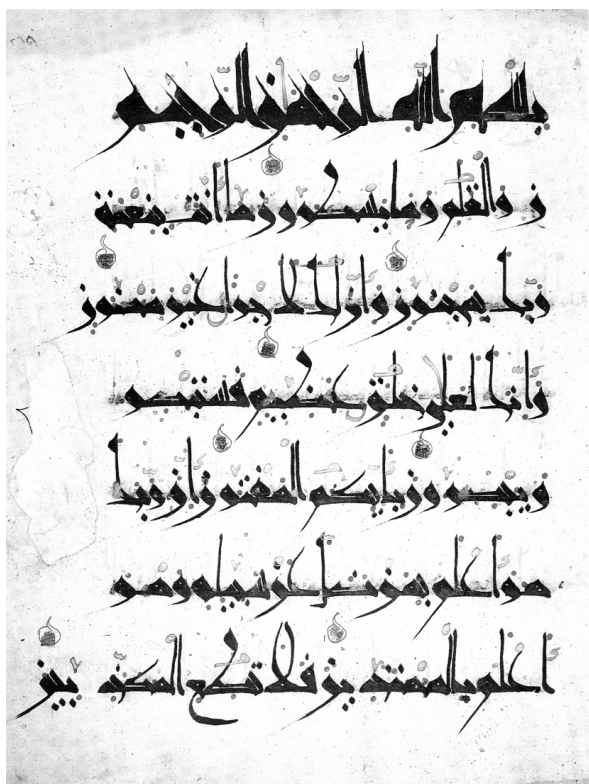 بسم الله الرحمن الرحيم
ن والقلم وما يسطرون ما انت بنعمة
ربك بمجنون وان لك لاجرا غير ممنون
وانك لعلى خلق عظيم فستبصر
ويبصرون باييكم المفتون ان ربك
هو اعلم بمن ضل عن سبيله وهو
اعلم بالمهتدين فلا تطع المكذبين